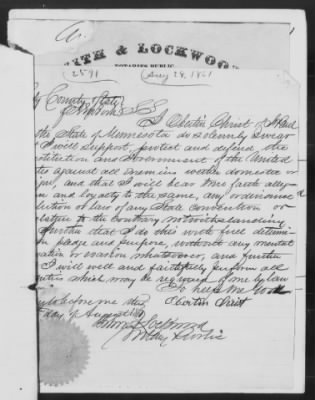 ITH & LOCKWOOD
NOTARIES PUBLIC
2591 Aug 28, 1861
County & State
of New York SS
I Charten Christ of St Paul
the State of Minnesota do solemnly swear
I will support, protect and defend the
stitution and Government of the United
tes against all enemies wether domestic or
gn, and that I will bear true faith alle
n and loyalty to the same, any ordinance
lution or law of any State Convention or
lature to the Contrary notwithstanding
further that I do this with full determin
pledge and purpose, without any mental
vation or evasion whatsoever, and further
I will well and faithfully perform all
uties which may be required of me by law
So help me God
before me this Charten Christ
day of August 1861
Lockwood
Notary Public